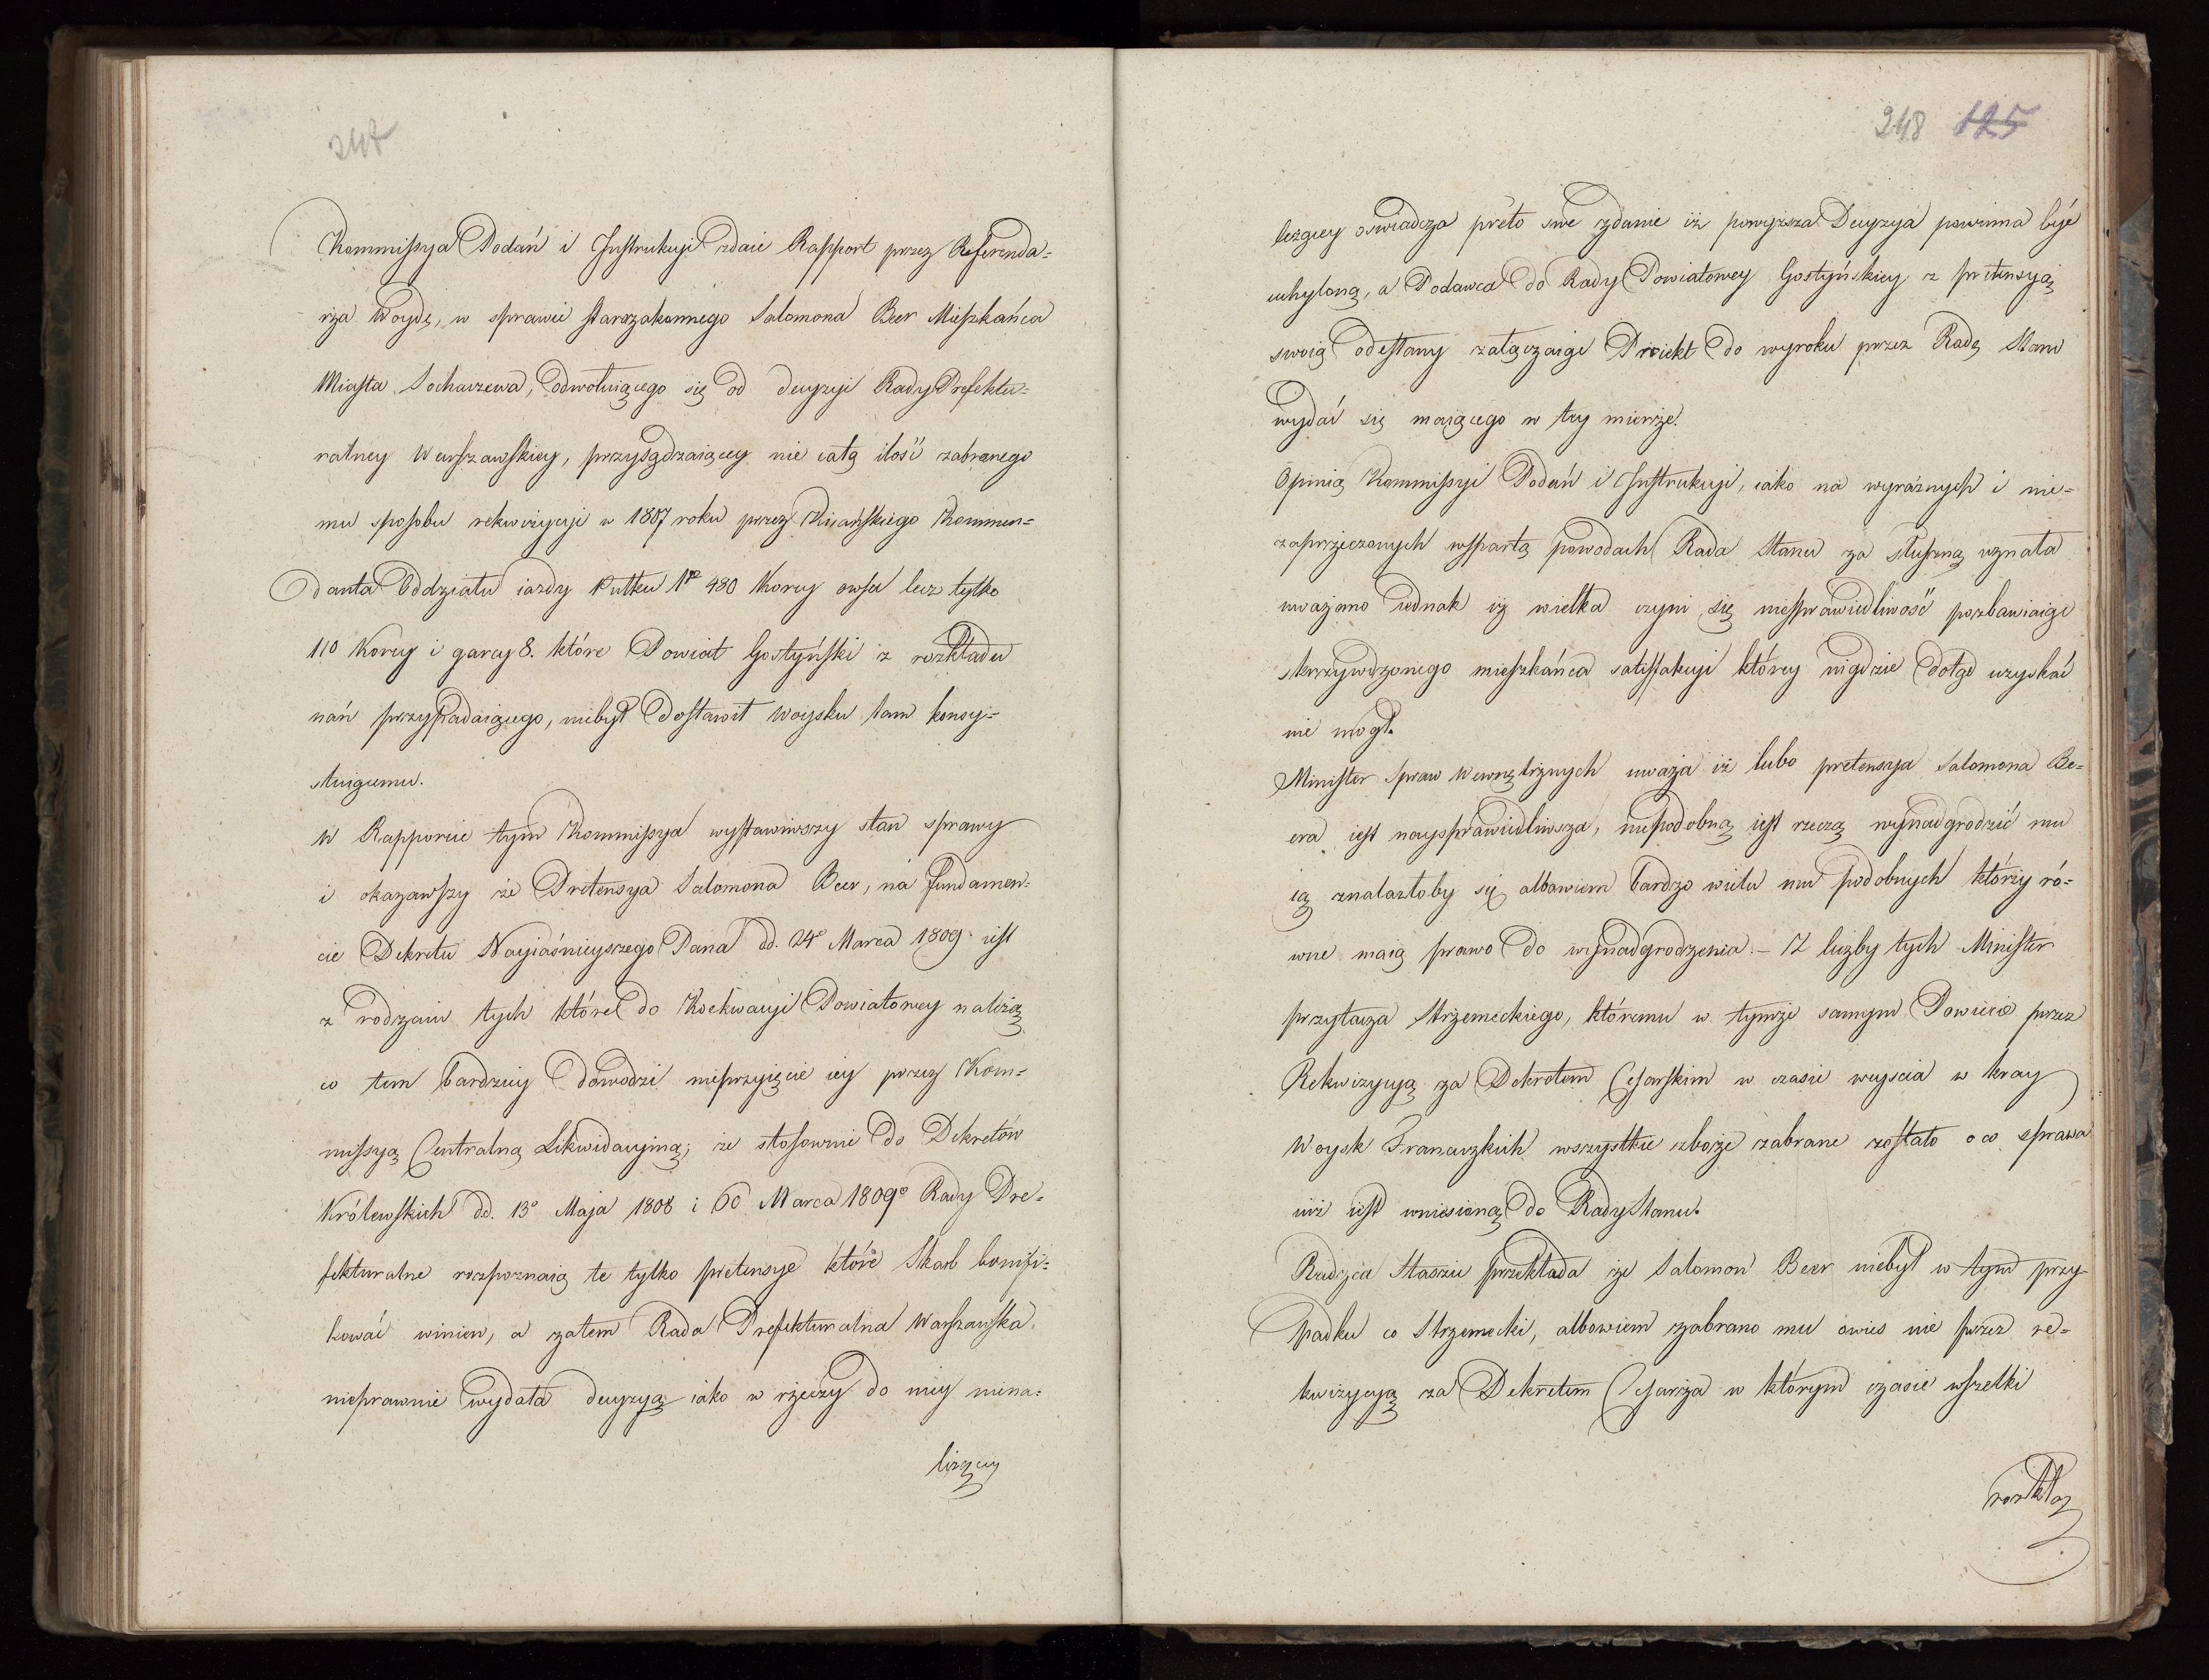 247
Kommissya Podań i Instrukcyi zdaie Rapport przez Referenda-
rza Woydę, w sprawie starozakonnego Salomona Beer Mieszkańca
Miasta Sochaczewa, odwołuiącego się od decyzyi Rady Prefektu-
ralney Warszawskiey, przysądzaiącey nie całą ilość zabranego
mu sposobu rekwizycyi w 1807 roku przez Kommen-
danta Oddziału iazdy Pułku 1go 480 Korcy owsa lecz tylko
110 Korcy i garcy 8. które Powiat Gostyński z rozkładu
nań przypadaiącego, niebył dostawił woysku tam konsy-
stuiącemu.
W Rapporcie tym Kommissya wystawiwszy stan sprawy
i okazawszy że Pretensya Salomona Beer, na fundamen-
cie Dekretu Nayiaśnieyszego Pana dd. 24o Marca 1809 iest
z rodzaiu tych które do Koekwacyi Powiatowey należą
co tem bardziey dowodzi nieprzyięcie iey przez Kom-
missyą Centralną Likwidacyiną; że stosownie do Dekretów
Królewskich dd. 13o Maja 1808 i Marca 1809o Rady Pre-
fekturalne rozpoznaią te tylko pretensye które Skarb bonifi-
kować winien, a zatem Rada Prefekturalna Warszawska
nieprawnie wydała decyzyą iako w rzeczy do niey niena-
leżącey
248 125
leżącey oświadcza przeto swe zdanie iż powyższa Decyzya powinna być
uchyloną, a Podawca do Rady Powiatowey Gostyńskiey z pretensyą
swoią odesłany załączaiąc Proiekt do wyroku przez Radę Stanu
wydać się maiącego w tey mierze.
Opinią Kommissyi Podań i Instrukcyi, iako na wyraźnych i nie-
zaprzeczonych wspartą powodach Rada Stanu za słuszną uznała
uważano iednak iż wielka czyni się niesprawiedliwość pozbawiaiąc
skrzywdzonego mieszkańca satisfakcyi którey nigdzie dotąd uzyskać
nie mógł.
Minister Spraw Wewnętrznych uważa iż lubo pretensya Salomona Be-
era iest naysprawiedliwsza, niepodobną iest rzeczą wynadgrodzić mu
ią znalazłoby się albowiem bardzo wielu mu podobnych którzy ró-
wne maią prawo do wynadgrodzenia. - Z liczby tych Minister
przytacza Strzemeckiego, któremu w tymże samym Powiecie przez
Rekwizycyą za Dekretem Cesarskim w czasie weyscia w kray
Woysk Francuzkich wszystkie zboże zabrane zostało o co sprawa
iuż iest wniesioną do Rady Stanu.
Radzca Staszic przekłada że Salomon Beer niebył w tym przy-
padku co Strzemecki, albowiem zabrano mu owies nie przez re-
kwizycyą za Dekretem Cesarza w którym czasie wszelki
rozkład